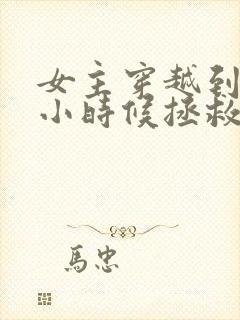 女主穿越到
小時候拯救
馬忠